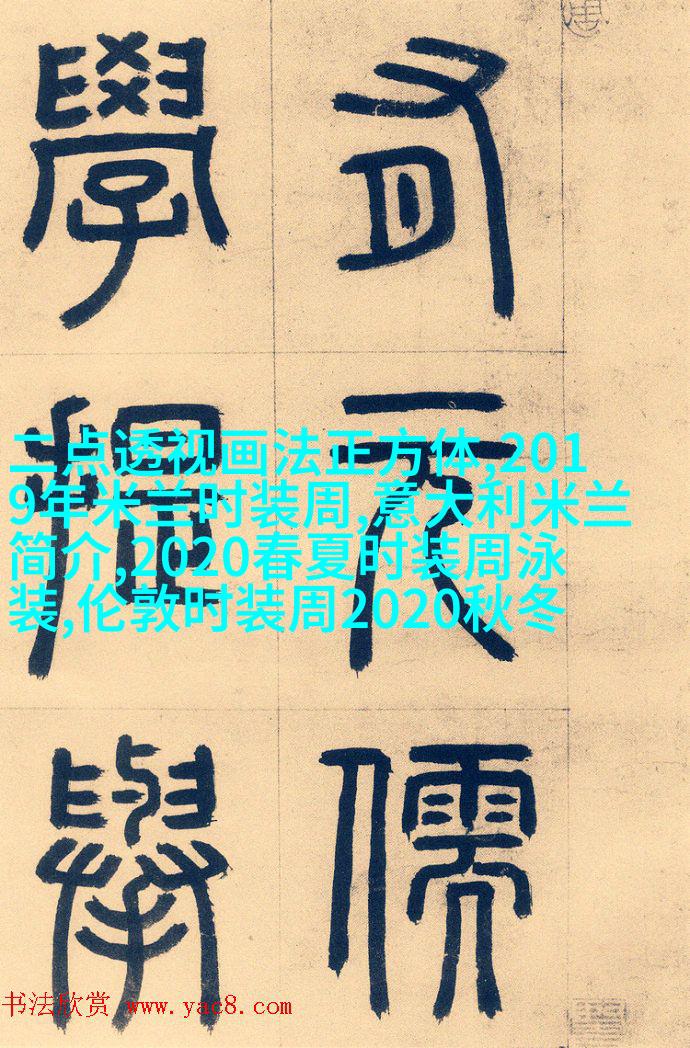 有元儒
學提舉
二点透视画法正方体,201
9年米兰时装周,意大利米兰
简介,2020春夏时装周泳
装,伦敦时装周2020秋冬
书法欣赏 www.yac8.com